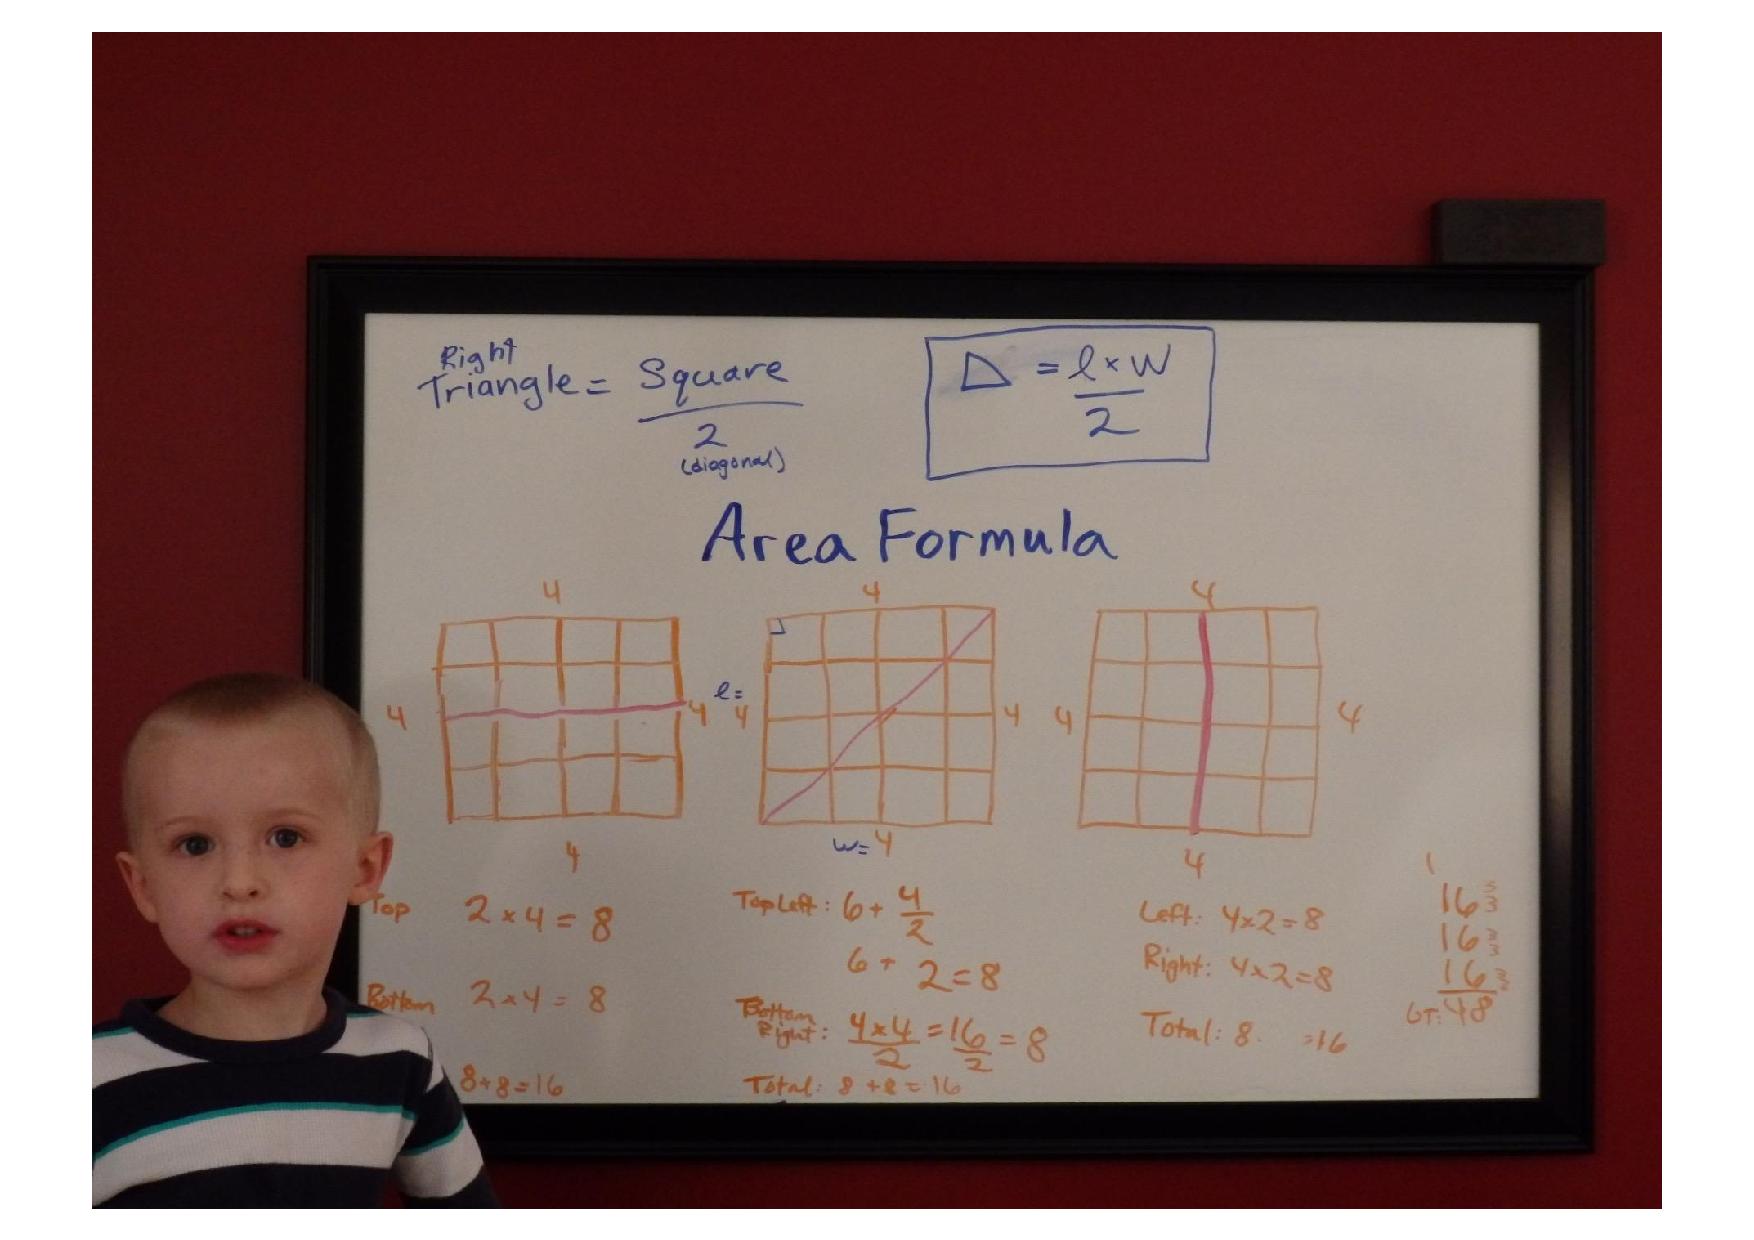 Right
Triangle = Square
2
(diagonal)
= l × W
2
Area Formula
4
4
4
4
4
l =
4
4
w = 4
4
4
4
4
Top 2 × 4 = 8
Bottom 2 × 4 = 8
8 + 8 = 16
Top Left: 6 + 4/2
6 + 2 = 8
Bottom
Right: 4×4/2 = 16/2 = 8
Total: 8 + 8 = 16
Left: 4×2=8
Right: 4×2=8
Total: 8 =16
1
16
16
16
GT: 48